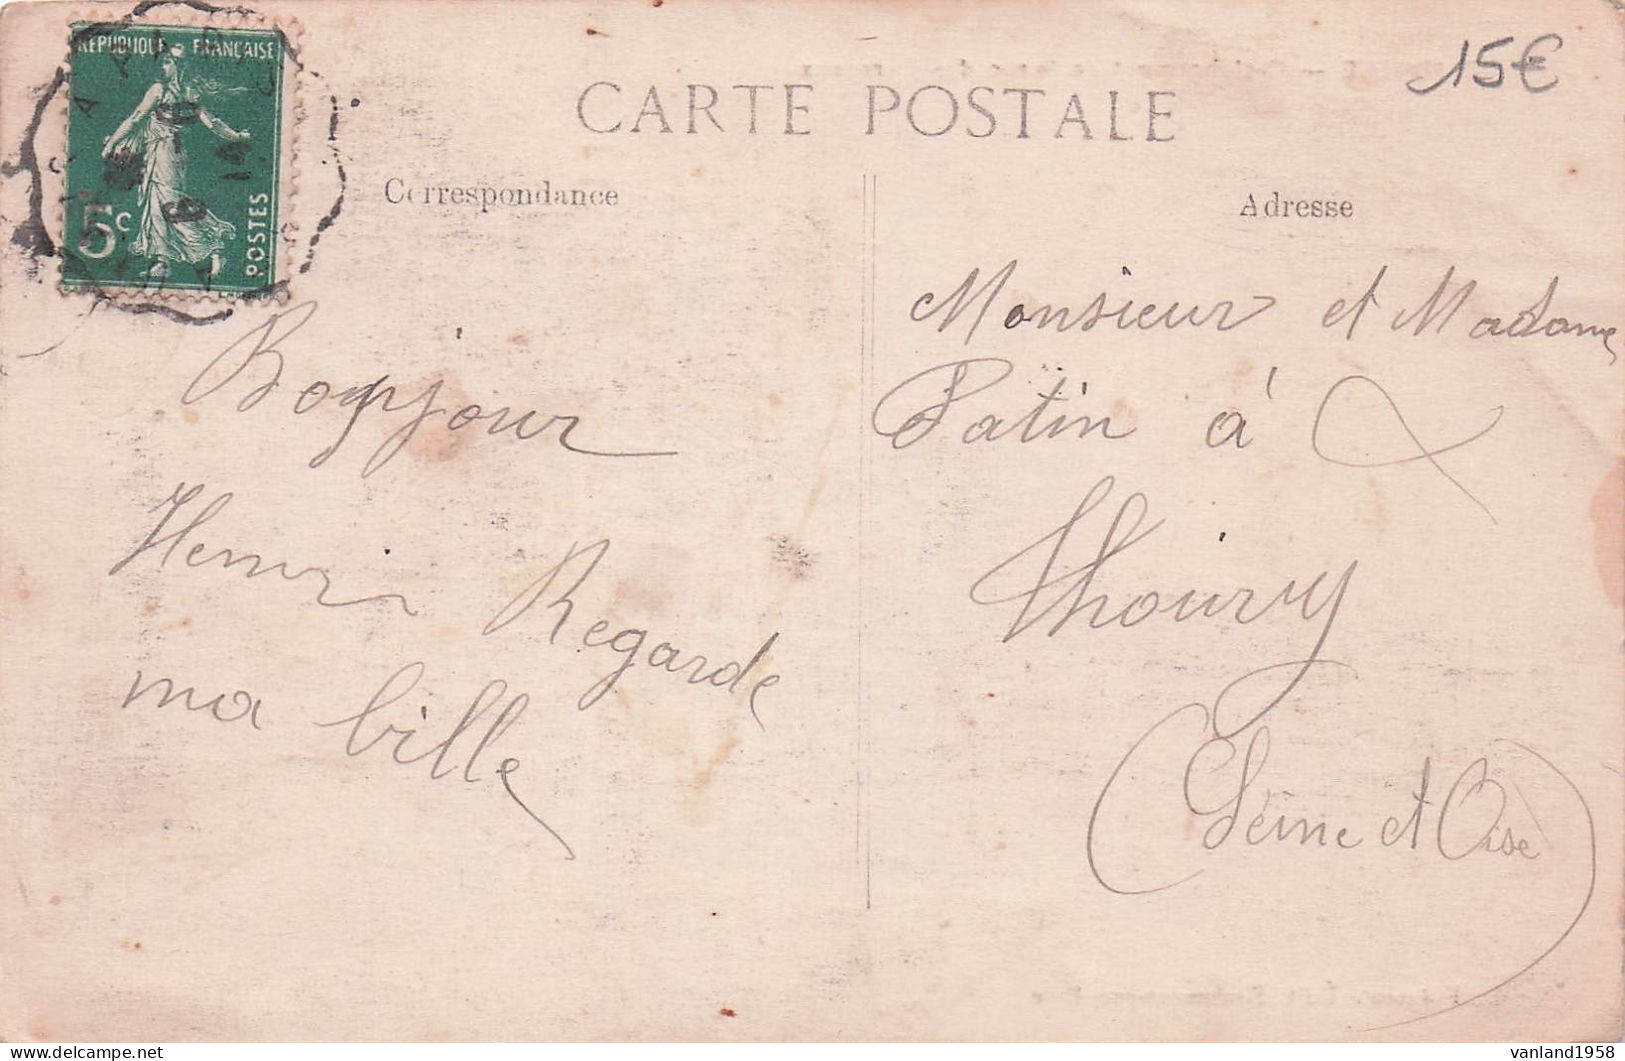 RÉPUBLIQUE FRANÇAISE
5c
POSTES
15€
CARTE POSTALE
Correspondance
Adresse
Bonjour
Henri Regarde
ma bille
Monsieur et Madame
Patin à
Thoiry
(Seine et Oise)
vanland1958